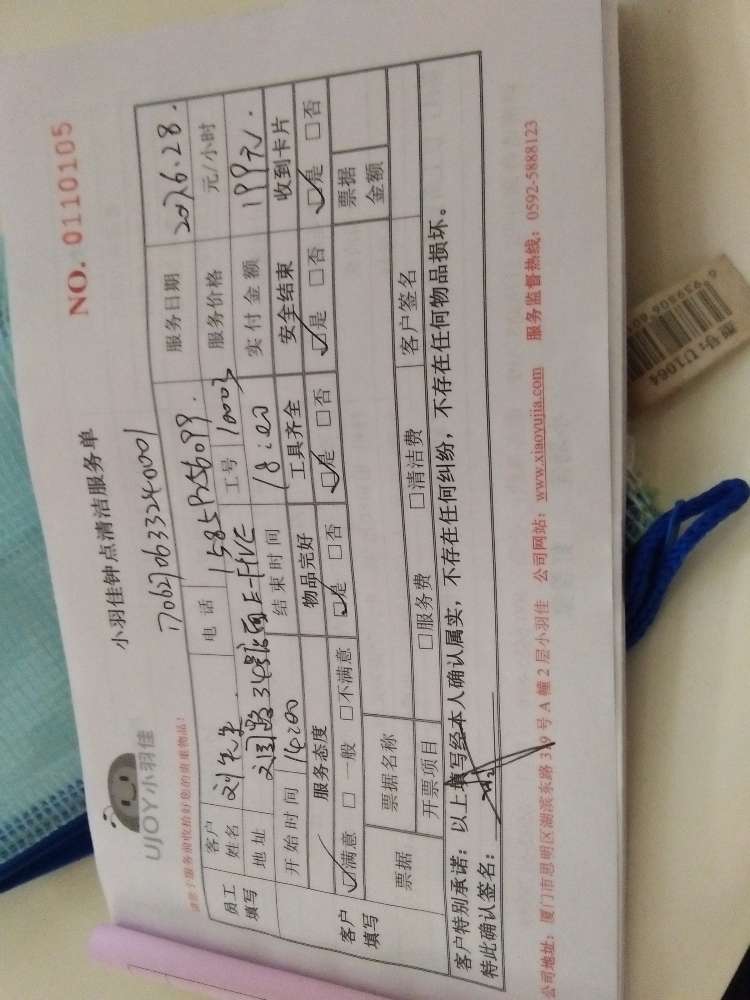 小羽佳钟点清洁服务单
NO. 0110105
UJOY小羽佳
请您于服务前收拾好您的贵重物品!
1706270633240001
员工填写
客户姓名 刘先生 电话 服务日期
地址 工号 10003 服务价格 元/小时
开始时间 14:00 结束时间 18:00 实付金额 199元.
客户填写
服务态度 物品完好 工具齐全 安全结束 收到卡片
☑满意 □一般 □不满意 ☑是 □否 ☑是 □否 ☑是 □否 ☑是 □否
票据 票据名称 票据金额
开票项目 □服务费 □清洁费 客户签名
客户特别承诺:以上填写经本人确认属实,不存在任何纠纷,不存在任何物品损坏。
特此确认签名:
公司地址:厦门市思明区湖滨东路319号A幢2层小羽佳 公司网站:www.xiaoyujia.com 服务监督热线:0592-5888123
型号:U1064